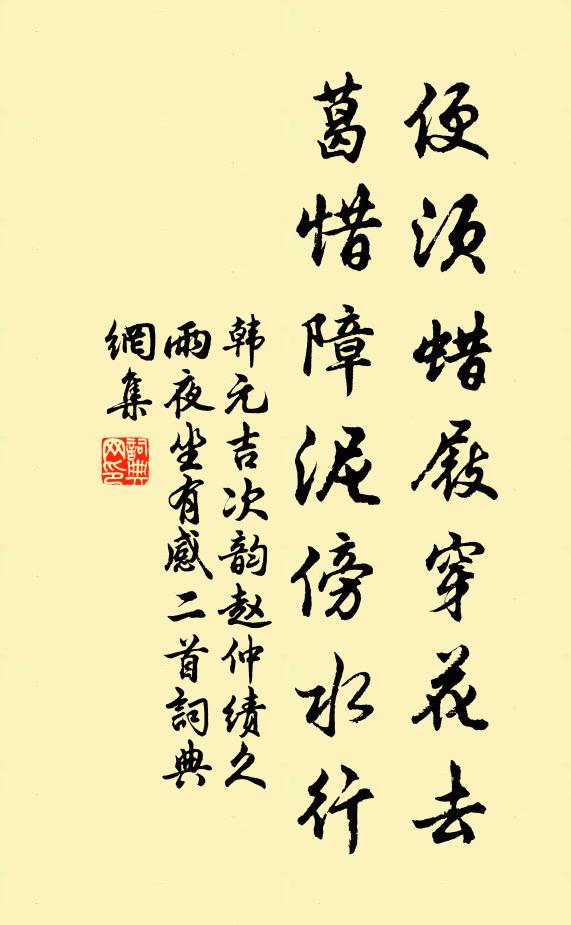 便须蜡屐穿花去
葛惜障泥傍水行
韩元吉次韵赵仲绩久
雨夜坐有感二首詞典
網集
詞典网印